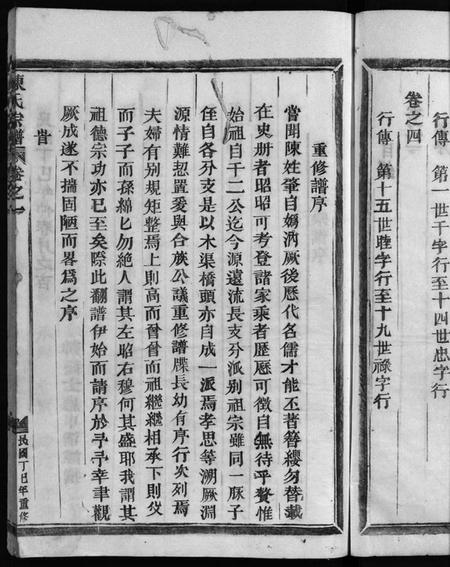 行傳 第一世千字行至十四世忠字行
卷之四
行傳 第十五世陸字行至十九世祿字行
重修譜序
嘗聞陳姓肇自媯汭厥後歷代名儒才能丕著簪纓勿替載
在史册者昭昭可考登諸家乘者歷歷可徵自無待乎贅惟
始祖自千二公迄今源遠流長支分派別祖宗雖同一脉子
侄自各分支是以木渠橋頭亦自成一派焉孝思等溯厥淵
源情難恝置爰與合族公議重修譜牒長幼有序行次列焉
夫婦有別規矩整焉上則高而曾曾而祖繼繼相承下則父
而子子而孫綿匕勿絕人謂其左昭右穆何其盛耶我謂其
祖德宗功亦已至矣際此翻譜伊始而請序於予予幸聿觀
厥成遂不揣固陋而畧為之序
旹
陳氏宗譜 卷之一
民國丁巳年重修